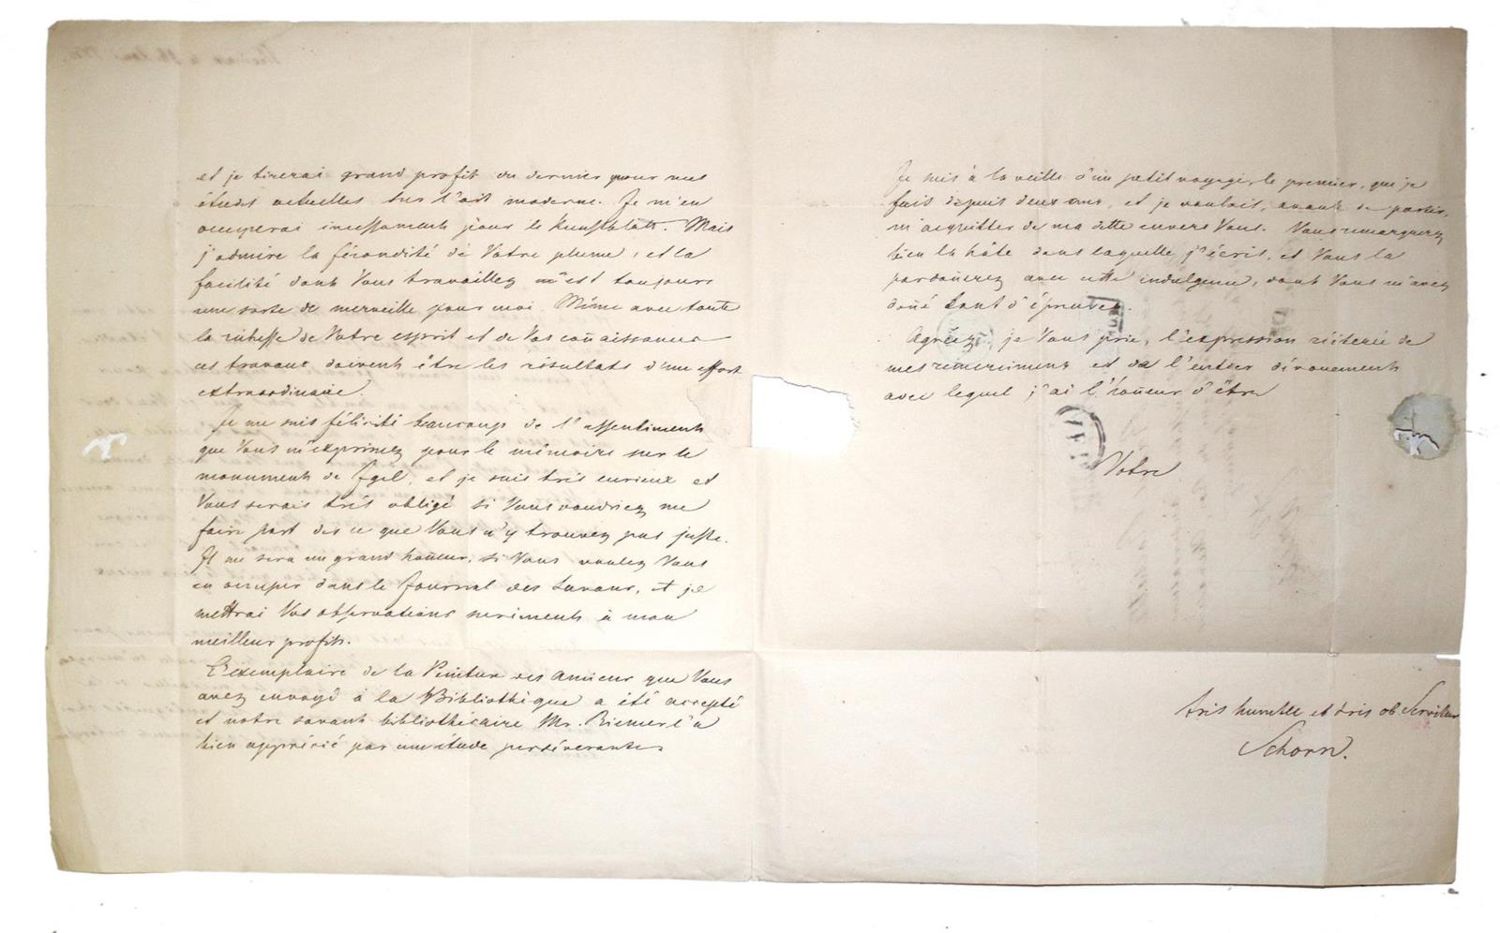 et je tirerai grand profit du dernier pour mes
études actuelles sur l'art moderne. Je m'en
occuperai incessament pour le Kunstblatt. Mais
j'admire la fécondité de Votre plume, et la
facilité dont Vous travaillez m'est toujours
une sorte de merveille pour moi. Même avec toute
la richesse de Votre esprit et de Vos coñaissances
ces travaux doivent être les résultats d'un effort
extraordinaire.
Je me suis félicité beaucoup de l'assentiment
que Vous m'exprimez pour le mémoire sur le
monument de Igel, et je suis très curieux et
Vous serais très obligé si Vous voudriez me
faire part des ce que Vous n'y trouvez pas juste.
Il me sera un grand hoñeur, si Vous voulez Vous
en occuper dans le Journal des Savans, et je
mettrai Vos observations surement à mon
meilleur profit.
L'exemplaire de la Peinture des Anciens que Vous
avez envoyé à la Bibliothèque a été accepté
et notre savant bibliothécaire Mr. Riemer l'a
bien apprécié par une étude persévérante.
Je suis à la veille d'un petit voyage, le premier, que je
fais depuis deux ans, et je voulais, avant de partir,
m'acquitter de ma dette envers Vous. Vous remarquerez
bien la hâte dans laquelle j'écris, et Vous la
pardoñerez avec cette indulgence, dont Vous m'avez
doñé tant d'épreuves.
Agréez, je Vous prie, l'expression réiterée de
mes remercimens et de l'entier dévouement
avec lequel j'ai l'hoñeur d'être
Votre
très humble et très ob Serviteur
Schorn.